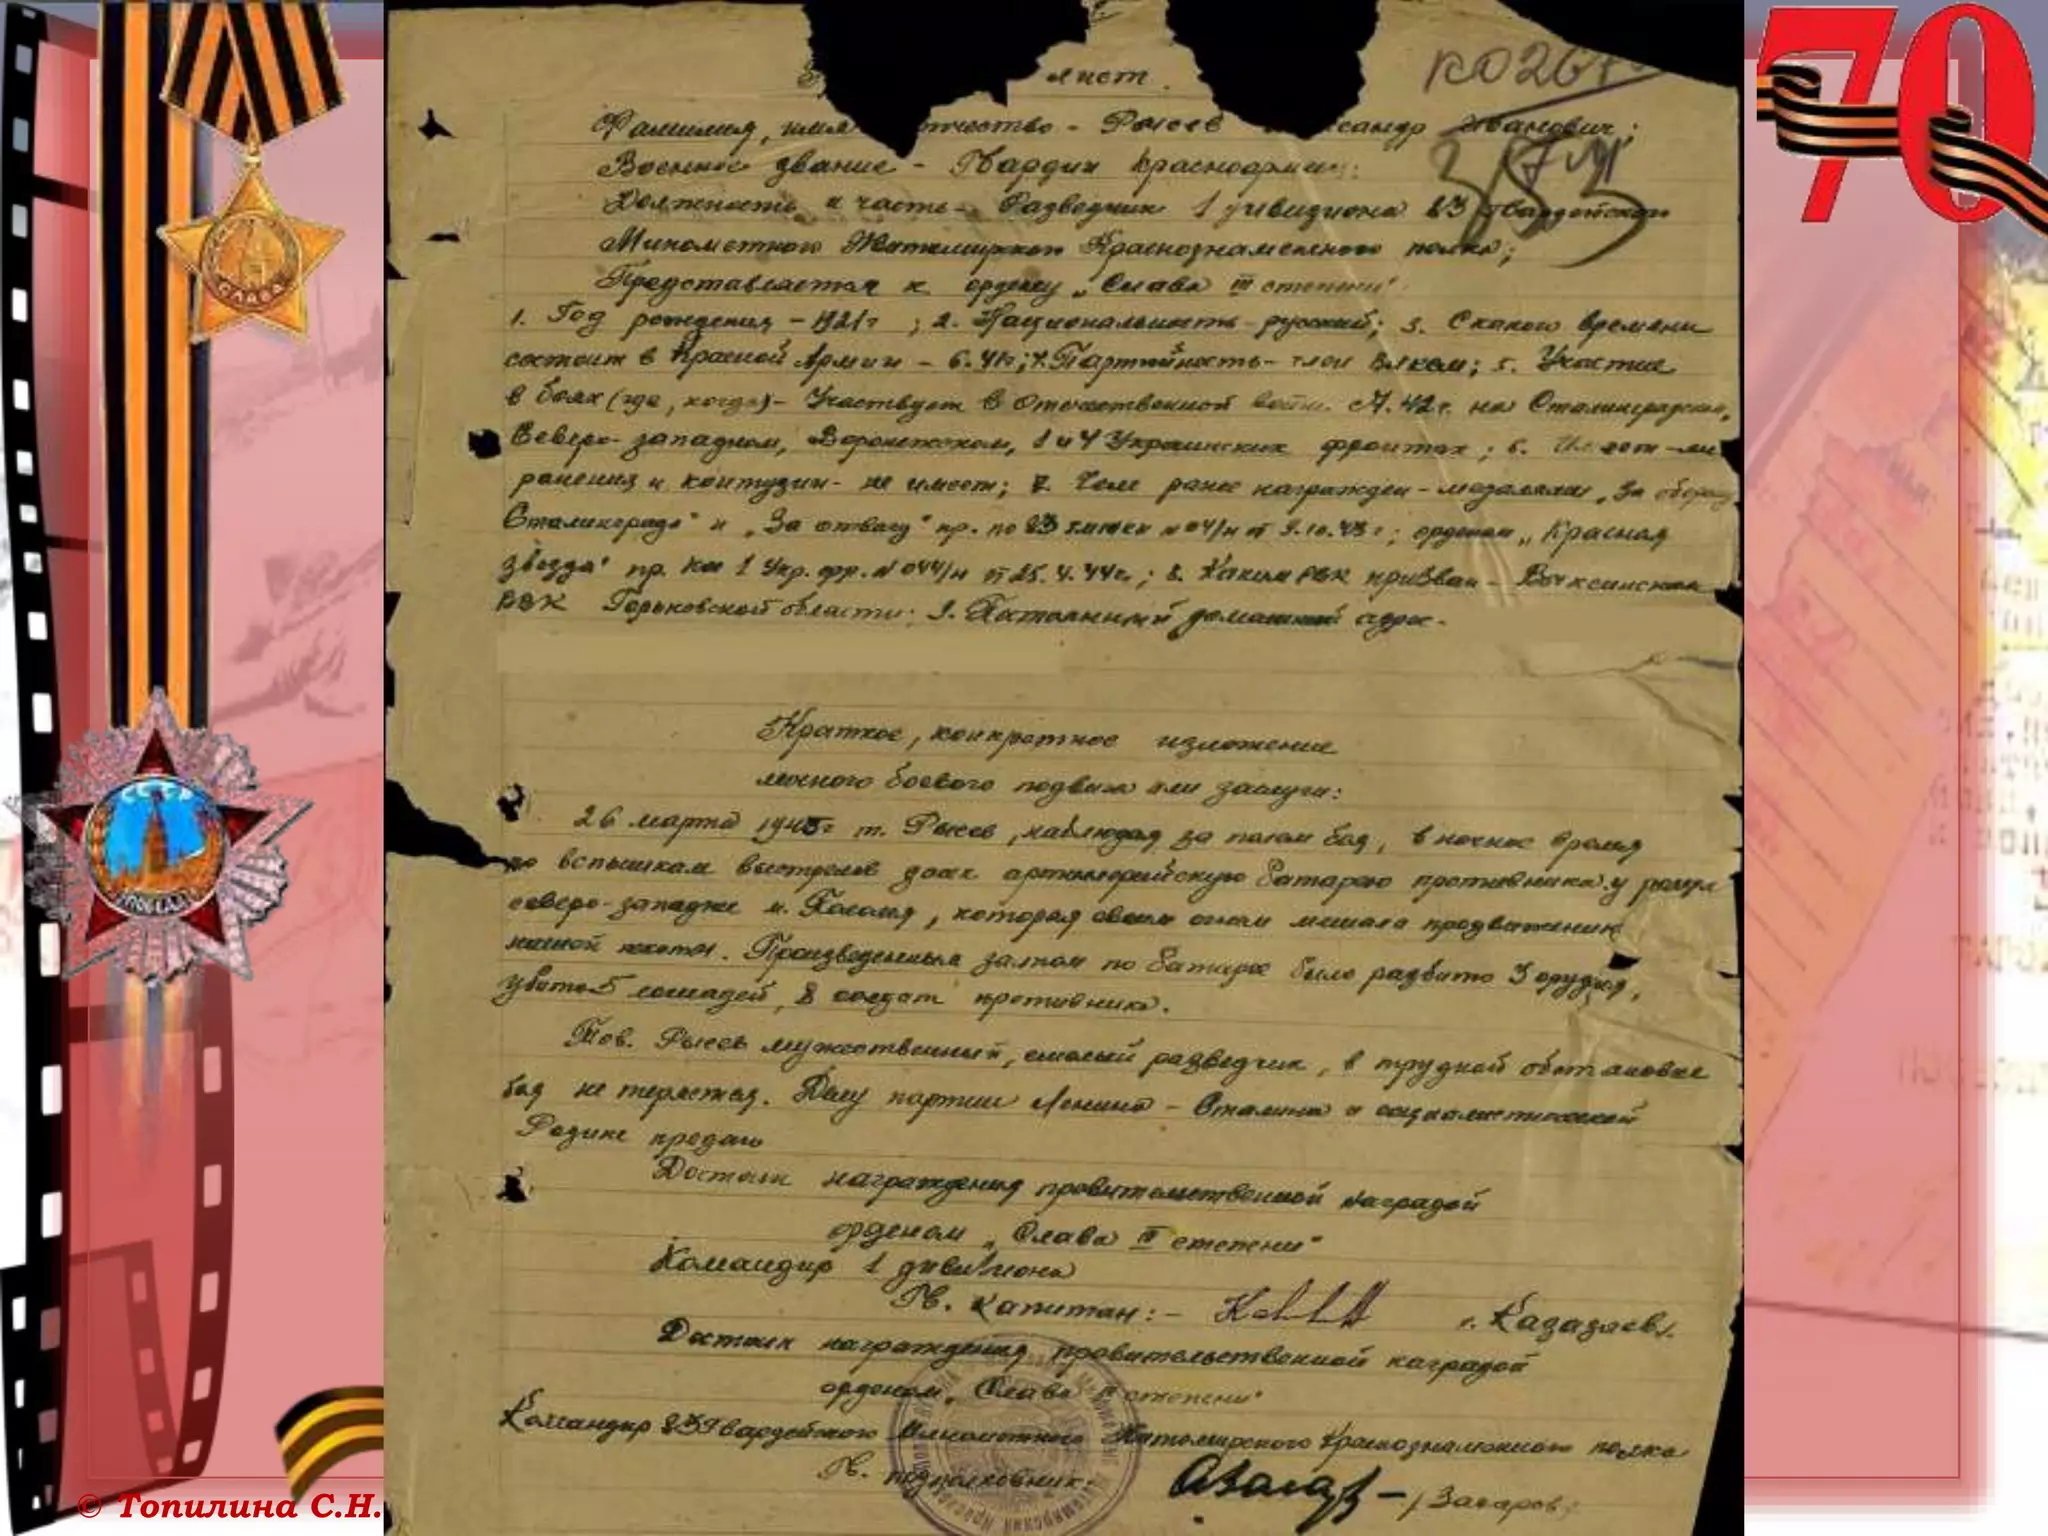 лист
КО267
Фамилия, имя отчество - Рысев Александр Иванович;
Военное звание - Гвардии Красноармеец:
Должность и часть - Разведчик 1 дивизиона 83 Гвардейского
Минометного Житомирского Краснознаменного полка;
Представляется к ордену „Слава III степени"
1. Год рождения - 1921 г ; 2. Национальность - русский; 3. С какого времени
состоит в Красной Армии - 6.41г; 4. Партийность - член ВЛКСМ; 5. Участие
в боях (где, когда) - Участвует в Отечественной войне 42 г. на Сталинградском,
Северо-западном, Воронежском, 1 и 4 Украинских фронтах; 6. Имеет ли
ранения и контузии - не имеет; 7. Чем ранее награжден - медалями „За оборону
Сталинграда" и „За отвагу" пр. по 83 04/н от 9.10.43 г; орденом „Красная
звезда" пр. 1 Укр. фр. N 044/н от 25.4.44г.; 8. Каким РВК призван - Выксинским
РВК Горьковской области; 9. Постоянный домашний адрес -
Краткое, конкретное изложение
личного боевого подвига или заслуги:
26 марта 1945г т. Рысев, наблюдая за полем боя, в ночное время
по вспышкам выстрелов артиллерийскую батарею противника у
северо-западнее м. , которая своим огнем мешала продвижению
нашей пехоты. Произведенным залпом по батарее было разбито 3 орудия,
убито 5 лошадей, 8 солдат противника.
Тов. Рысев мужественный, смелый разведчик, в трудной обстановке
боя не теряется. Делу партии Ленина - Сталина и социалистической
Родине предан
Достоин награждения правительственной наградой
орденом „Слава III степени"
Командир 1 дивизиона
Гв. капитан: - Казазаев
Достоин награждения правительственной наградой
орденом „Слава III степени"
Командир 83 Гвардейского Минометного Житомирского Краснознаменного полка
Гв. подполковник: - Захаров
70
СЛАВА
ПОБЕДА
© Топилина С.Н.